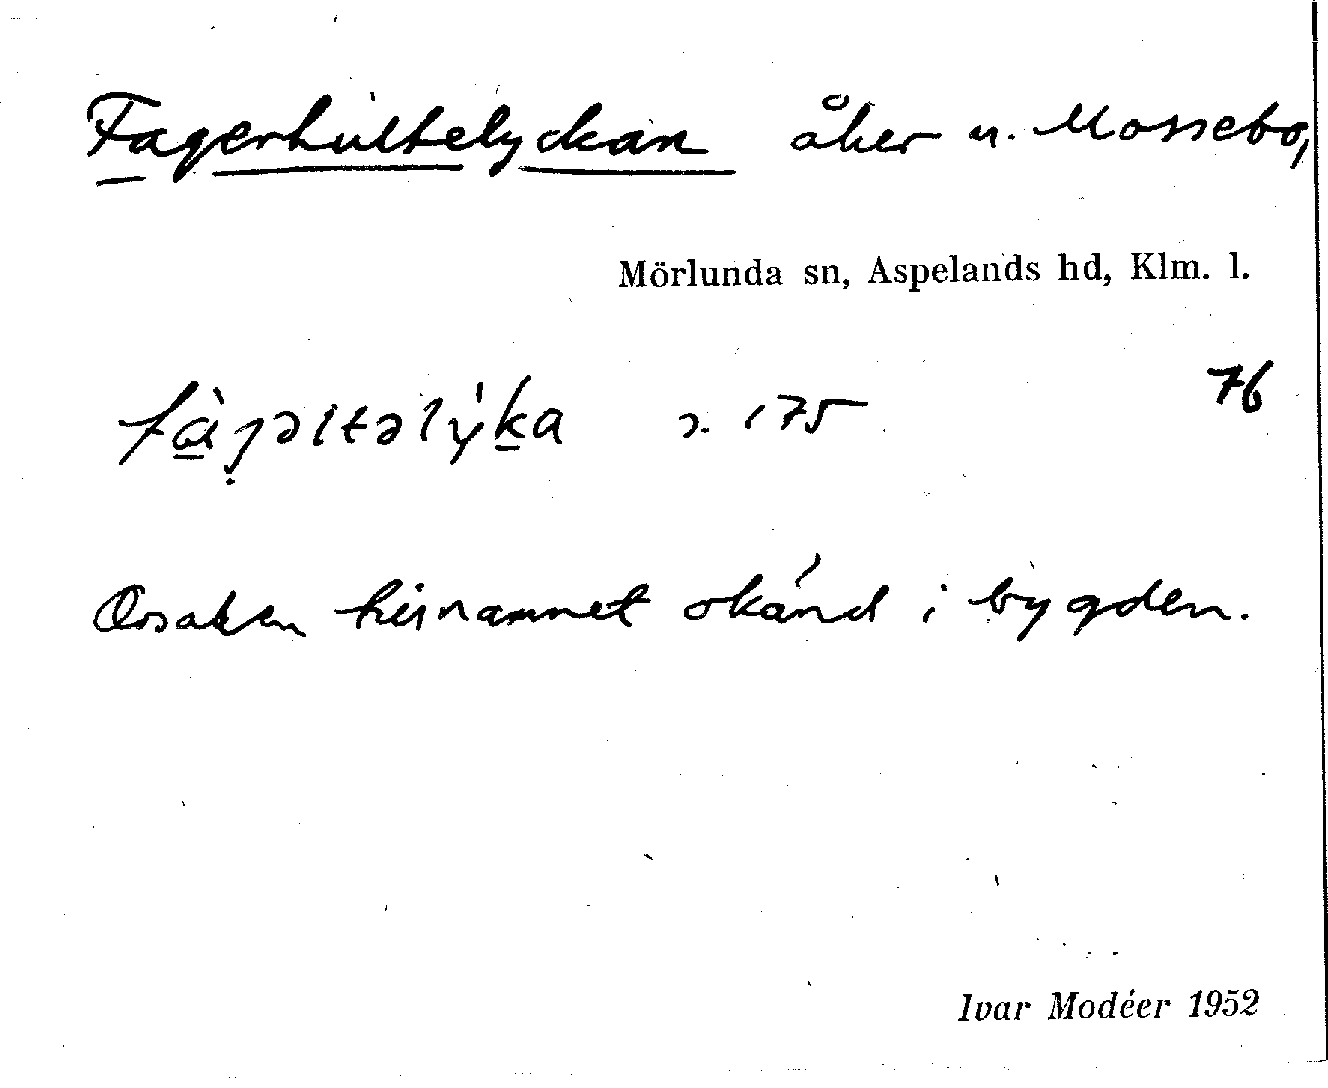 Fagerhultelyckan åker u. Mossebo,
Mörlunda sn, Aspelands hd, Klm. l.
76
175
Orsaken till namnet okänd i bygden.
Ivar Modéer 1952